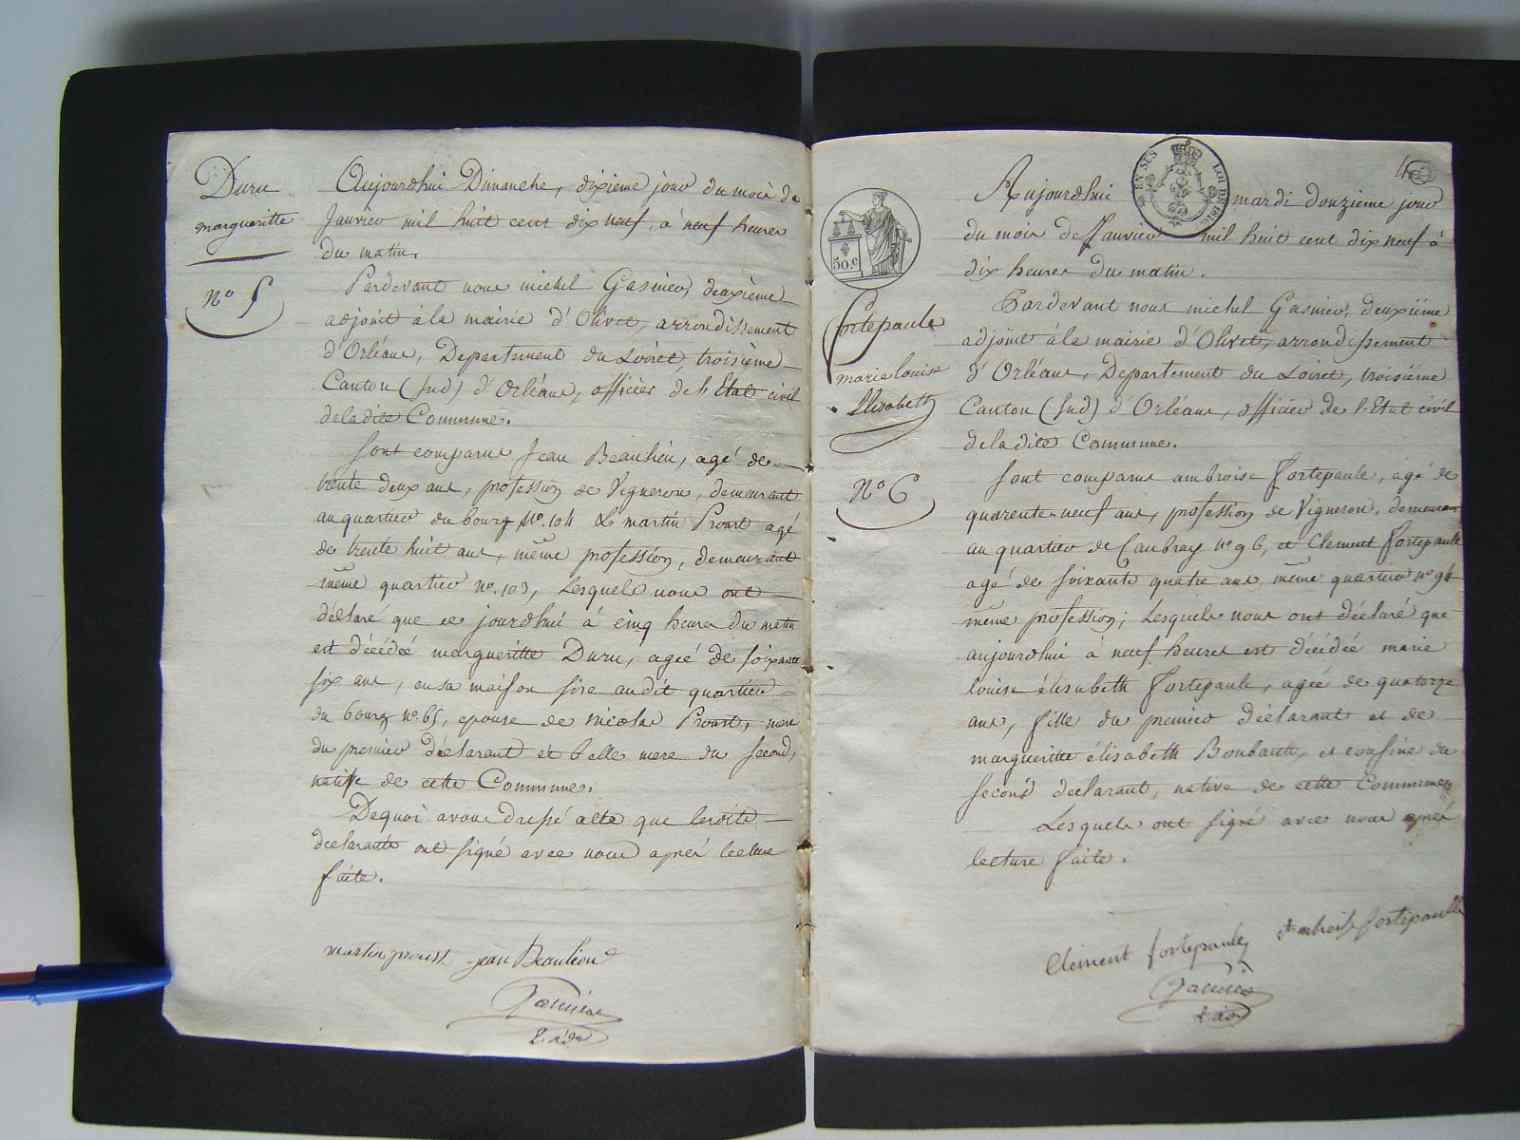 Duru
marguerite
N° 5
Aujourdhui Dimanche, dixieme jour du mois de
Janvier mil huit cent dix neuf, à neuf heures
du matin.
Pardevant nous michel Gasnier, deuxième
adjoint à la mairie d'Olivet, arrondissement
d'Orléans, Departement du Loiret, troisième
Canton (sud) d'Orléans, officier de l'Etat civil
de la dite Commune.
Sont comparus Jean Beaulieu, agé de
trente deux ans, profession de Vigneron, demeurant
au quartier du bourg N°. 104 & martin Proust agé
de trente huit ans, même profession, demeurant
même quartier n°. 103, Lesquels nous ont
déclaré que ce jourdhui à cinq heures du matin
est décédée marguerite Duru, ageé de soixante
six ans, en sa maison sise audit quartier
du bourg n°. 65, epouse de nicolas Proust, mere
du premier déclarant et belle mere du second,
native de cette Commune.
De quoi avons dressé acte que lesdits
declarants ont signé avec nous aprés lecture
faite.
martin proust jean Beaulieu
Gasnier
2. adj
EN SUS
LOI DE 1816
50 c
Fortepaule
marie louise
Elisabeth
N° 6
Aujourdhui mardi douzieme jour
du mois de Janvier mil huit cent dix neuf à
dix heures du matin.
Pardevant nous michel Gasnier, deuxième
adjoint à la mairie d'Olivet, arrondissement
d'Orléans, Departement du Loiret, troisième
Canton (sud) d'Orléans, officier de l'Etat civil
de la dite Commune.
Sont comparus ambroise Fortepaule, agé de
quarente neuf ans, profession de Vigneron, demeurant
au quartier de Caubray n° 96, et Clement Fortepaule
agé de soixante quatre ans même quartier n° 96
même profession; Lesquels nous ont déclaré que
aujourdhui à neuf heures est décédée marie
louise élisabeth Fortepaule, ageé de quatorze
ans, fille du premier déclarant et de
marguerite élisabeth Bonbault, et cousine du
second declarant, native de cette Commune
Lesquels ont signé avec nous aprés
lecture faite.
Clément fortepaule Ambroise fortepaulle
Gasnier
2 adj